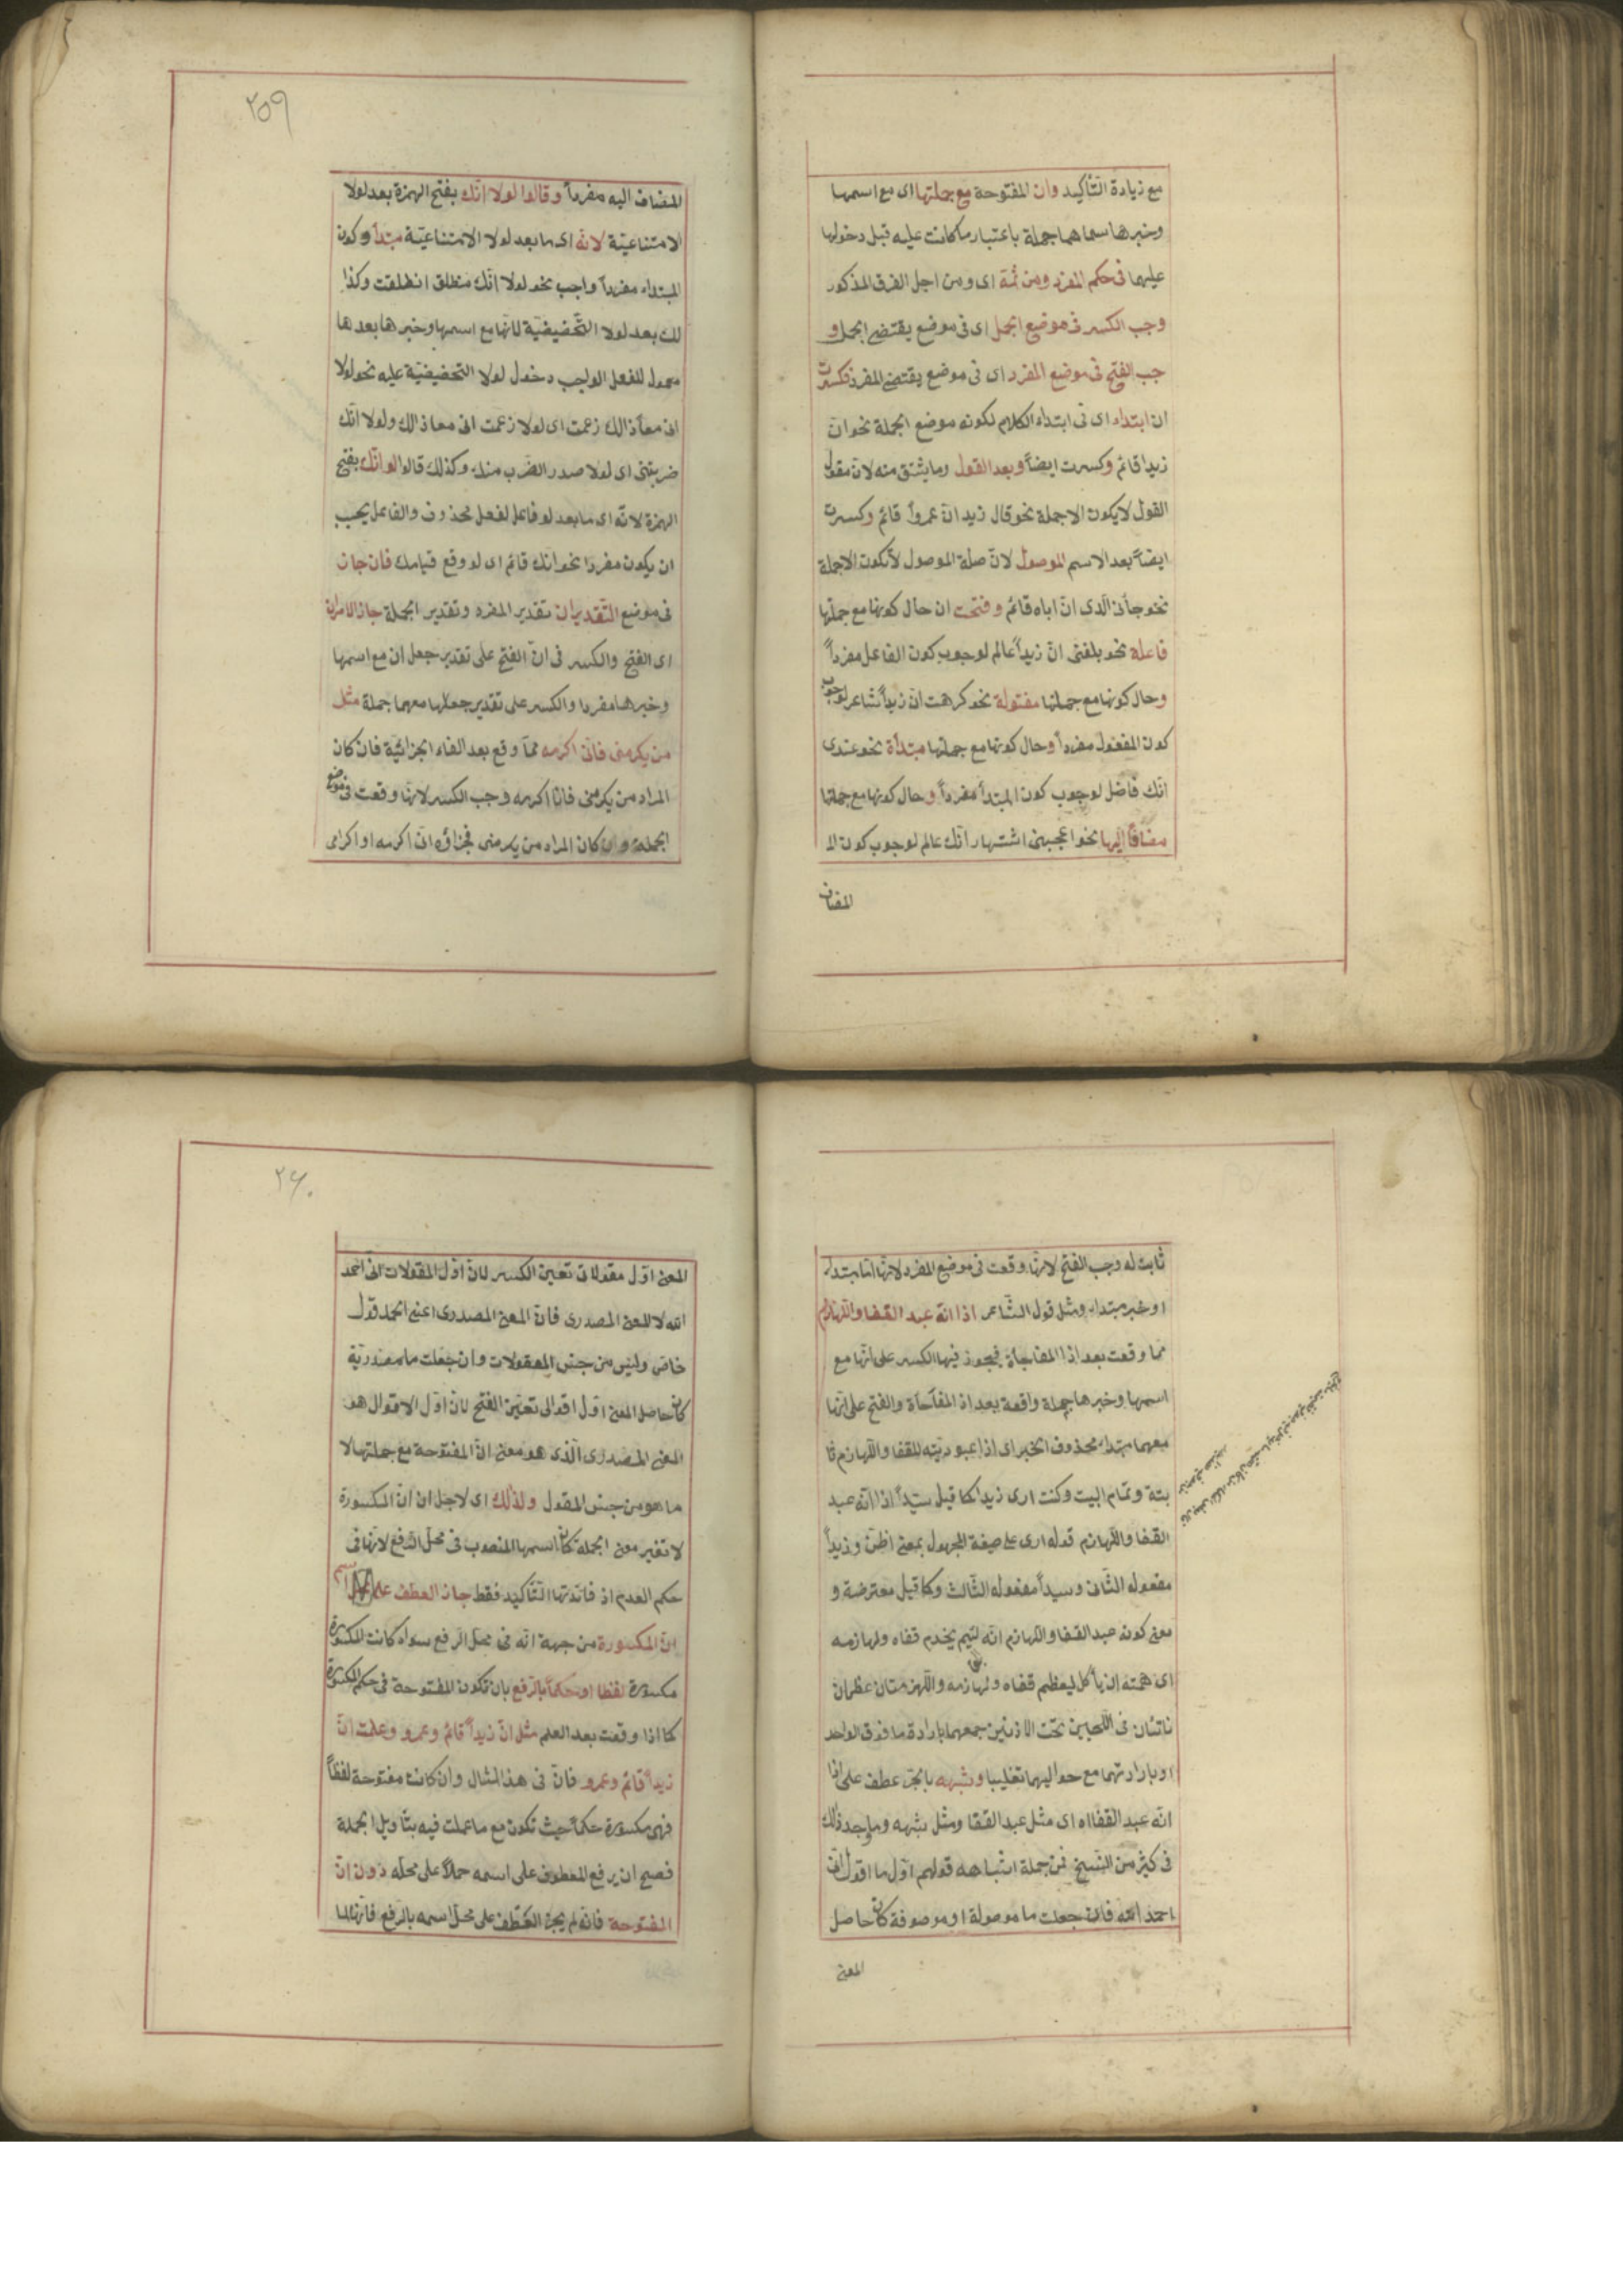 مع زيادة التأكيد وان المفتوحة مع جملتها اى مع اسمها
وخبرها سماهما جملة باعتبار ما كانت عليه قبل دخولها
عليها فى حكم المفرد ومن ثمة اى ومن اجل الفرق المذكور
وجب الكسر فى موضع الجمل اى فى موضع يقتضى الجمل و
جب الفتح فى موضع المفرد اى فى موضع يقتضى المفرد فكسرت
ان ابتداء اى فى ابتداء الكلام لكونه موضع الجملة نحو انّ
زيدا قائم وكسرت ايضاً وبعد القول وما يشتق منه لانّ مقول
القول لا يكون الا جملة نحو قال زيد انّ عمرواً قائم وكسرت
ايضاً بعد الاسم الموصول لانّ صلة الموصول لا تكون الا جملة
نحو جاءنى الّذى انّ اباه قائم وفتحت ان حال كونها مع جملتها
فاعلة نحو بلغنى انّ زيداً عالم لوجوب كون الفاعل مفرداً
وحال كونها مع جملتها مفعولة نحو كرهت انّ زيداً شاعر لوجوب
كون المفعول مفرداً وحال كونها مع جملتها مبتدأة نحو عندى
انّك فاضل لوجوب كون المبتدأ مفرداً وحال كونها مع جملتها
مضافاً اليها نحو اعجبنى اشتهار انّك عالم لوجوب كون ال
المضاف
٢٥٩
المضاف اليه مفرداً وقالوا لولا انّك بفتح الهمزة بعد لولا
الامتناعيّة لانّه اى ما بعد لولا الامتناعيّة مبتدأ وكون
المبتداء مفرداً واجب نحو لولا انّك منطلق انطلقت وكذا
لك بعد لولا التّحضيضيّة لانّها مع اسمها وخبرها بعدها
معمول للفعل الواجب دخول لولا التحضيضيّة عليه نحو لولا
انى معاذ الك زعمت اى لولا زعمت انى معاذ الك ولولا انّك
ضربتنى اى لولا صدر الضّرب منك وكذلك قالوا لو انّك بفتح
الهمزة لانّه اى ما بعد لو فاعل لفعل محذوف والفاعل يجب
ان يكون مفردا نحو انك قائم اى لو وقع قيامك فان جاز
فى موضع التّقديران تقدير المفرد وتقدير الجملة جاز الامران
اى الفتح والكسر فى انّ الفتح على تقدير جعل ان مع اسمها
وخبرها مفردا والكسر على تقدير جعلها معهما جملة مثل
من يكرمنى فانّى اكرمه ممّا وقع بعد الفاء الجزائيّة فان كان
المراد من يكرمنى فانا اكرمه وجب الكسر لانها وقعت فى موضع
الجملة وان كان المراد من يكرمنى فجزاؤه انّى اكرمه او اكرامى
ثابت له وجب الفتح لانها وقعت فى موضع المفرد لانها امّا مبتداء
او خبر مبتداء ومثل قول الشّاعر اذا انّه عبد القفا واللهازم
ممّا وقعت بعد اذا المفاجأة فيجوز فيها الكسر على انّها مع
اسمها وخبرها جملة واقعة بعد اذ المفأجأة والفتح على انّها
معهما مبتداء محذوف الخبر اى اذا عبوديّته للقفا واللّهازم ثا
بتة وتمام البيت وكنت ارى زيداً كما قيل سيّداً اذا انّه عبد
القفا واللّهازم قوله ارى على صيغة المجهول بمعنى اظنّ وزيداً
مفعوله الثّانى وسيداً مفعوله الثّالث وكما قيل معترضة و
معنى كونه عبد القفا واللّهازم انّه لئيم يخدم قفاه ولهازمه
اى همّته ان يأكل ليعظم قفاه ولهازمه واللّهزمتان عظمان
ناتئان فى اللّحيين تحت الاذنين جمعهما بارادة ما فوق الواحد
او بارادتهما مع حواليهما تغليبا وشبهه بالجرّ عطف على اذا
انّه عبد القفا اه اى مثل عبد القفا ومثل شبهه وما وجد ذلك
فى كثير من النّسخ فمن جملة اشباهه قولهم اوّل ما اقول انّى
احمد الله فان جعلت ما موصولة او موصوفة كان حاصل
المعنى
٢٦٠
المعنى اوّل مقولاتى تعيّن الكسر لانّ اوّل المقولات انّى احمد
الله لا للمعنى المصدرى فانّ المعنى المصدرى اعنى الحمد قول
خاصّ وليس من جنس المقولات وان جعلت ما مصدريّة
كان حاصل المعنى اوّل اقوالى تعيّن الفتح لانّ اوّل الاقوال هو
المعنى المصدرى الّذى هو معنى انّ المفتوحة مع جملتها لا
ما هو من جنس المقول ولذلك اى لاجل ان انّ المكسورة
لا تغير معنى الجملة كان اسمها المنصوب فى محل الرفع لانها فى
حكم العدم اذ فائدتها التّأكيد فقط جاز العطف على اسم
انّ المكسورة من جهة انّه فى محل الرفع سواء كانت المكسورة
مكسورة لفظا او حكماً بالرفع بان تكون المفتوحة فى حكم المكسورة
كما اذا وقعت بعد العلم مثل انّ زيداً قائم وعمرو وعلمت انّ
زيداً قائم وعمرو فانّ فى هذا المثال وان كانت مفتوحة لفظاً
فهى مكسورة حكماً حيث تكون مع ما عملت فيه بتأويل الجملة
فصح ان يرفع المعطوف على اسمه حملاً على محلّه دون انّ
المفتوحة فانّه لم يجز العطف على محلّ اسمه بالرفع فانّها لما